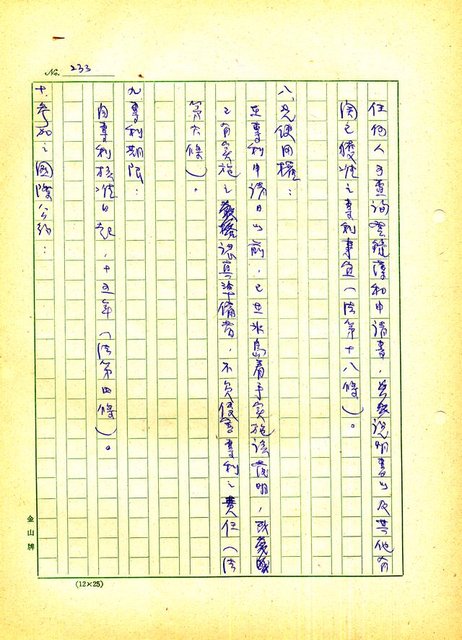 No. 233
任何人可查詢登記簿和申請書，說明書以及其他有
關已獲准之專利事宜（法第十八條）。
八、先使用權：
在專利申請日以前，已在冰島着手實施該發明，或
已有實施之準備者，不負侵害專利之責任（法
第六條）。
九、專利期限：
自專利核准日起，十五年（法第四條）。
十、參加之國際公約：
金山牌
(12×25)